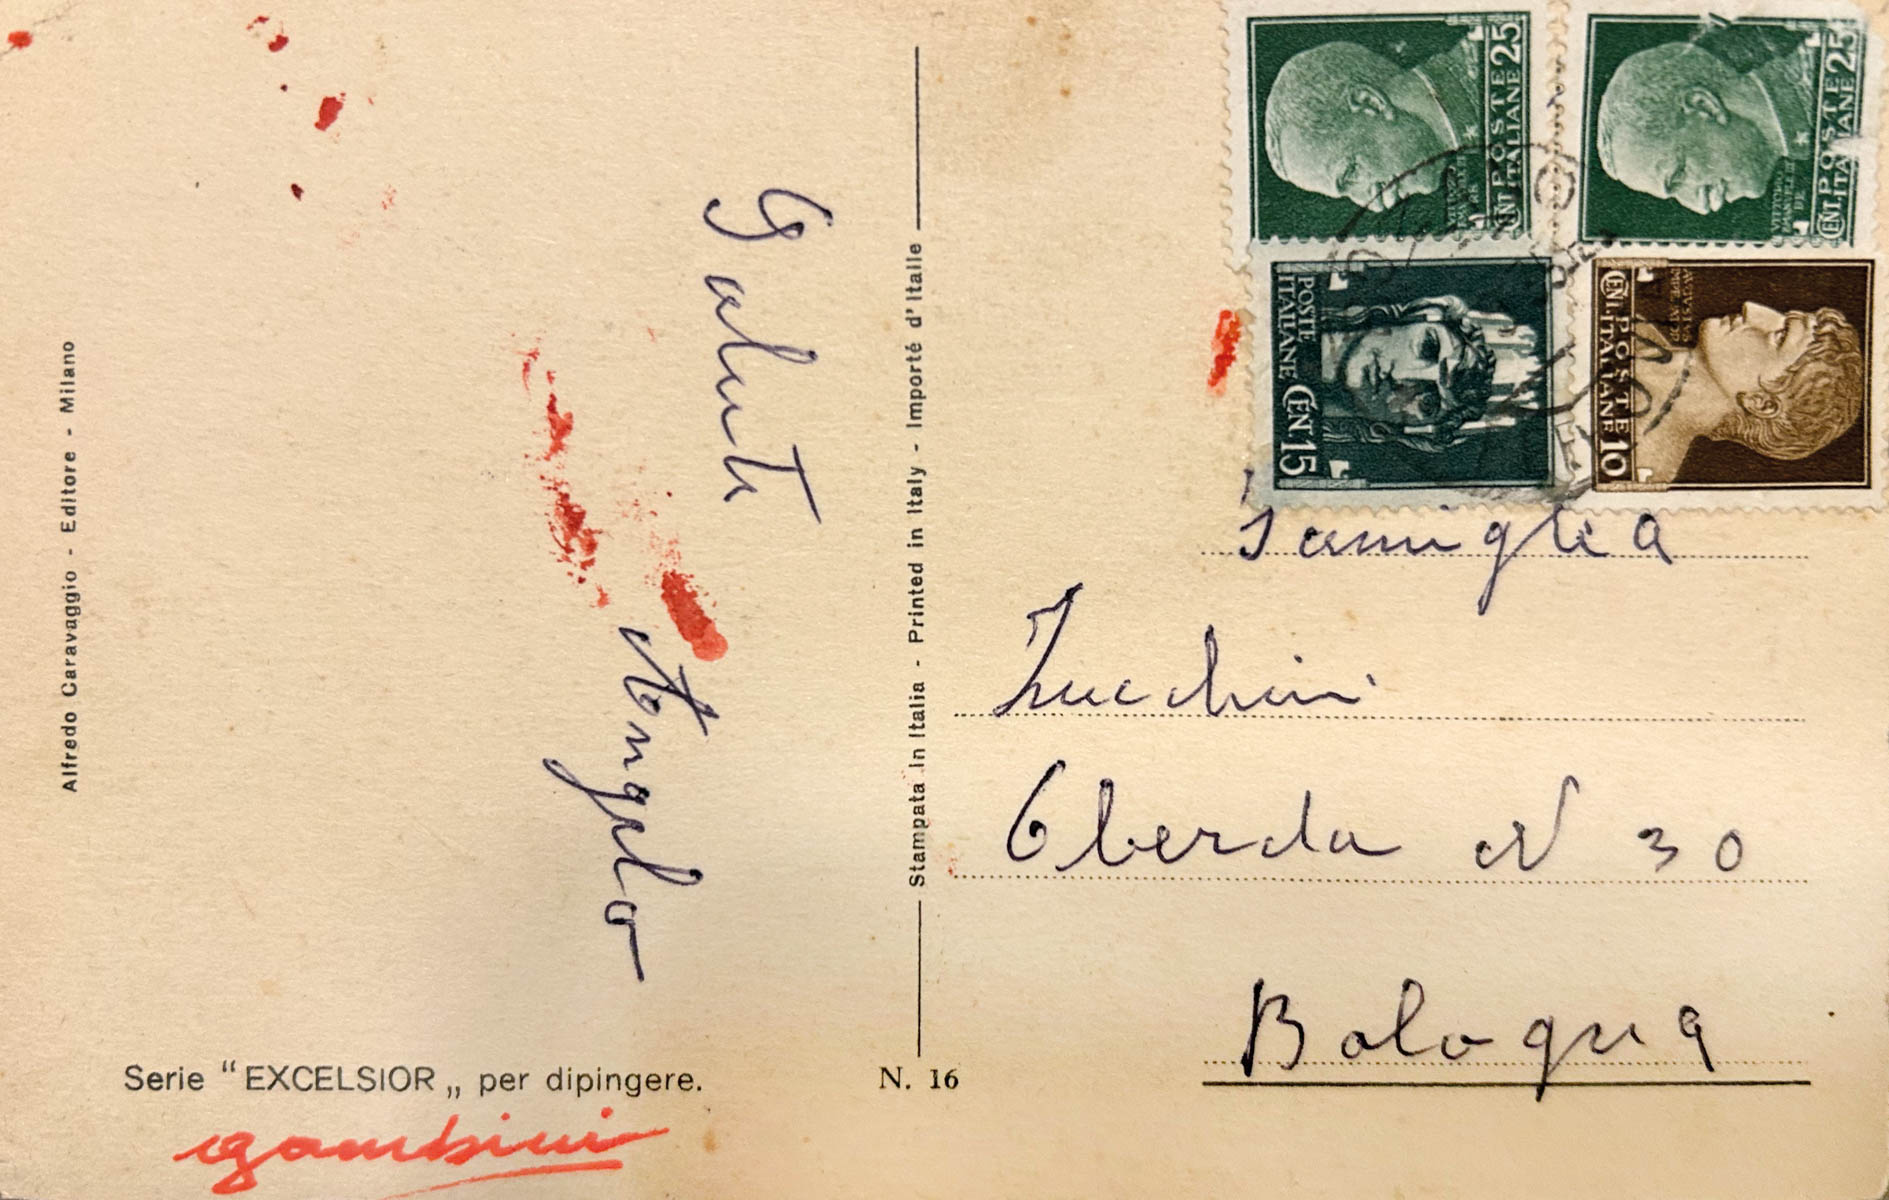 Alfredo Caravaggio - Editore - Milano
Saluti
Angelo
Serie “EXCELSIOR„ per dipingere.
gambini
Stampata in Italia - Printed in Italy - Importé d'Italie
N. 16
CENT. 25
POSTE ITALIANE
CENT. 25
POSTE ITALIANE
POSTE ITALIANE
CENT. 15
CENT. 10
POSTE ITALIANE
Famiglia
Zucchini
Oberda N 30
Bologna